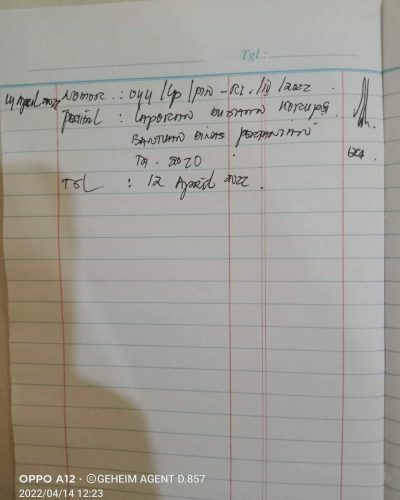 Tgl :
14 April 2022 NOMOR : 044 / Lp / PIN - RI / IV / 2022
Perihal : LAPORAN DUGAAN KORUPSI
BANTUAN DINAS PERTANIAN
TA. 2020
TGL : 12 April 2022.
OPPO A12 · ©GEHEIM AGENT D.857
2022/04/14 12:23